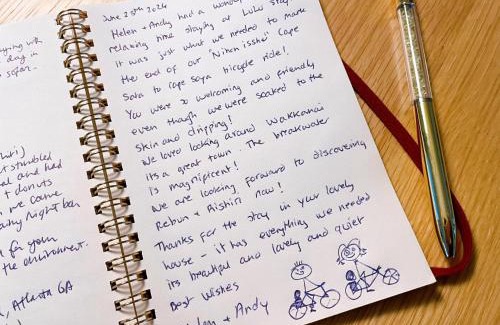 June 25th 2024
Helen + Andy had a
relaxing time staying at Lulu Stay.
It was just what we needed to mark
the end of our 'Nihon isshū' Cape
Sata to Cape Soya bicycle ride!
You were so welcoming and friendly
even though we were soaked to the
skin and dripping!
We loved looking around Wakkanai
its a great town. The breakwater
is magnificent!
We are looking forward to discovering
Rebun + Rishiri now!
Thanks for the stay in your lovely
house - it has everything we needed
its beautiful and lovely and quiet
Best wishes
+ Andy
day in
stumbled
and had
+ donuts
we came
night
for your
the environment.
Atlanta GA